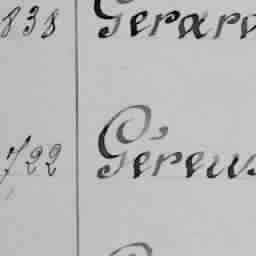 838 Gerard
722 Gereus